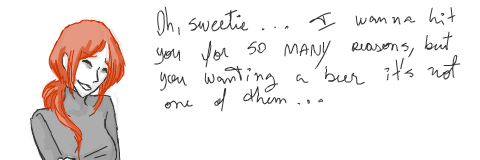 Oh, sweetie... I wanna hit
you for SO MANY reasons, but
you wanting a beer it's not
one of them...